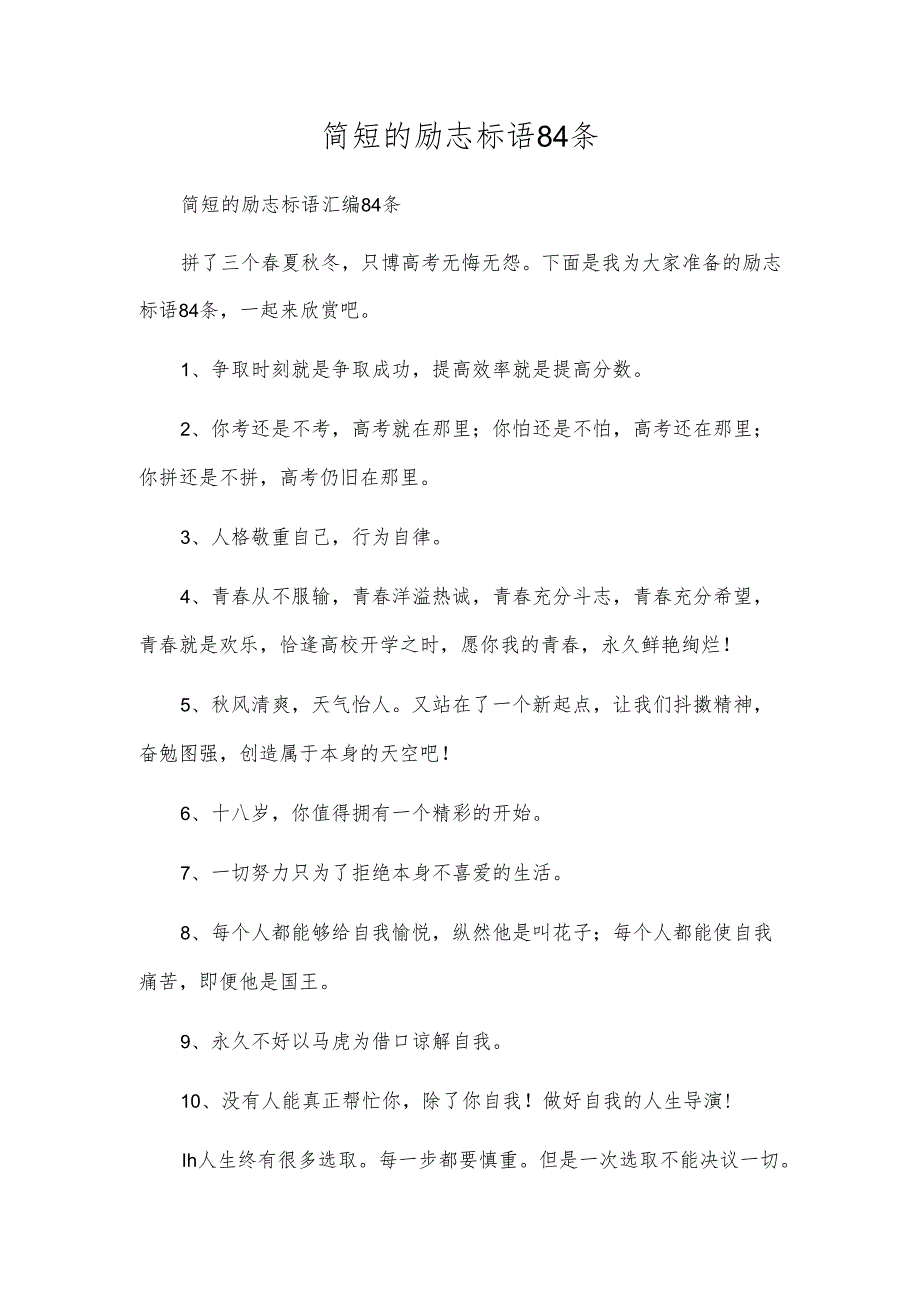 简短的励志标语84条
简短的励志标语汇编84条
拼了三个春夏秋冬，只博高考无悔无怨。下面是我为大家准备的励志
标语84条，一起来欣赏吧。
1、争取时刻就是争取成功，提高效率就是提高分数。
2、你考还是不考，高考就在那里；你怕还是不怕，高考还在那里；
你拼还是不拼，高考仍旧在那里。
3、人格敬重自己，行为自律。
4、青春从不服输，青春洋溢热诚，青春充分斗志，青春充分希望，
青春就是欢乐，恰逢高校开学之时，愿你我的青春，永久鲜艳绚烂！
5、秋风清爽，天气怡人。又站在了一个新起点，让我们抖擞精神，
奋勉图强，创造属于本身的天空吧！
6、十八岁，你值得拥有一个精彩的开始。
7、一切努力只为了拒绝本身不喜爱的生活。
8、每个人都能够给自我愉悦，纵然他是叫花子；每个人都能使自我
痛苦，即便他是国王。
9、永久不好以马虎为借口谅解自我。
10、没有人能真正帮忙你，除了你自我！做好自我的人生导演！
Ih人生终有很多选取。每一步都要慎重。但是一次选取不能决议一切。